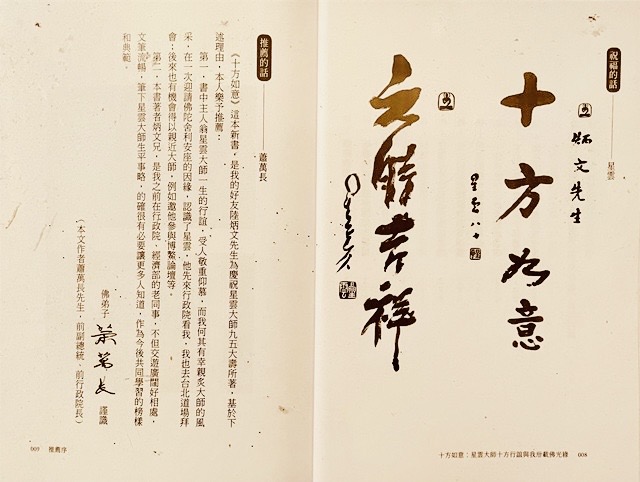 祝福的話——星雲
炳文先生
十方如意
星雲八十
六時吉祥
十方如意：星雲大師十方行誼與我卅載佛光緣 008
推薦的話——蕭萬長
《十方如意》這本新書，是我的好友陸炳文先生為慶祝星雲大師九五大壽所著，基於下
述理由，本人樂予推薦：
第一，書中主人翁星雲大師一生的行誼，受人敬重仰慕，而我何其有幸親炙大師的風
采，在一次迎請佛陀舍利安座的因緣，認識了星雲，他先來行政院看我，我也去台北道場拜
會；後來也有機會得以親近大師，例如邀他參與博鰲論壇等。
第二，本書著者炳文兄，是我之前在行政院、經濟部的老同事，不但交遊廣闊好相處，
文筆流暢，筆下星雲大師生平事略，的確很有必要讓更多人知道，作為今後共同學習的榜樣
和典範。
佛弟子 蕭萬長 謹識
（本文作者蕭萬長先生，前副總統、前行政院長）
009 推薦序